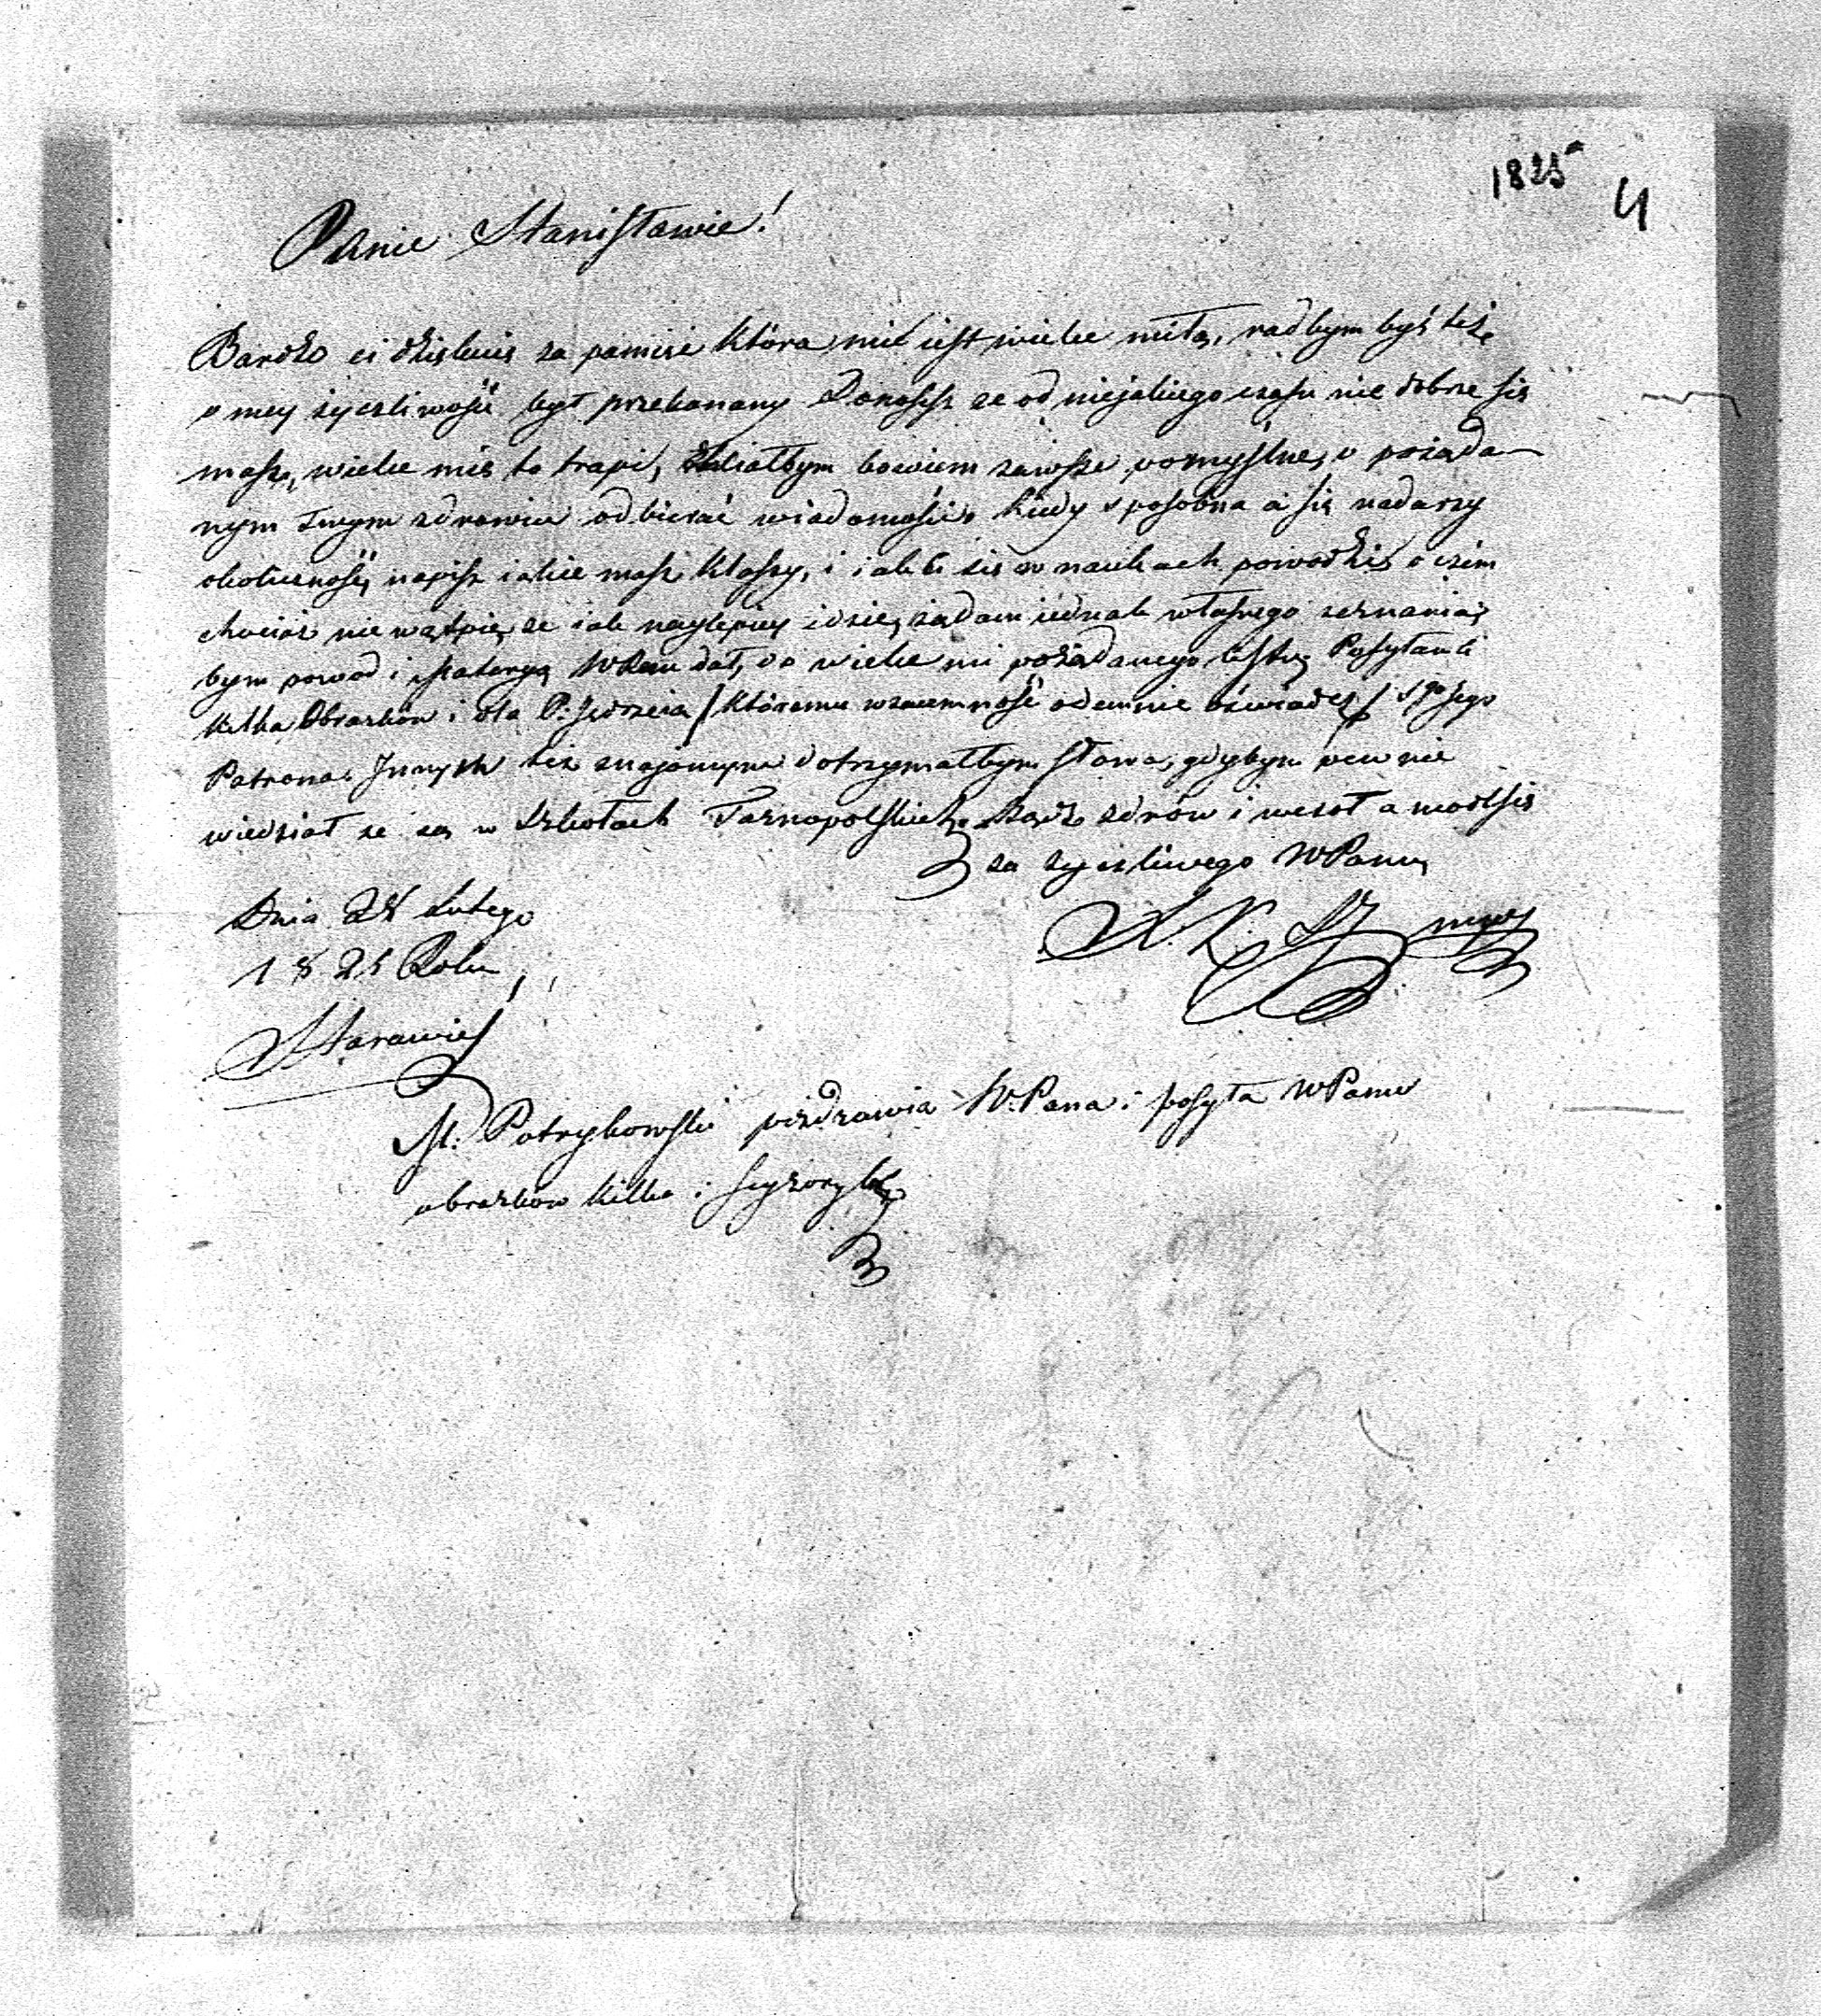 1825
4
Panie Stanisławie!
Bardzo ci dziękuię za pamięć która mi iest wielce miła, radbym byś też
o mey życzliwości był przekonany Donosisz że od niejakiego czasu nie dobrze się
masz, wielce mię to trapi, chciałbym bowiem zawsze pomyślne, o pożąda
nym Twym zdrowiu odbierać wiadomości. Kiedy sposobna ci się nadarzy
okoliczność, napisz iakie masz klassy, i iak ci się w naukach powodzi, o czém
chociaż nie wątpię, że iak naylepiey idzie, żądam iednak własnego zeznania,
bym powod i materyą WPanu dał, do wielce mi pożądanego listu, Posyłam ci
kilka Obrazków i dla P. Jędrzeia / któremu wzaiemność odemnie oświadcz / Sgo Jego
Patrona. Innych też znajomym dotrzymałbym słowa, gdybym pewnie
wiedział że są w Szkołach Tarnopolskich. Bądź zdrów i wesoł a módl się
za życzliwego WPanu,
Dnia 24 Lutego
1825 Roku
X. K.
Starawieś
M. Patrykowski pozdrawia W. Pana i posyła WPanu
obrazków kilka i scyzoryk